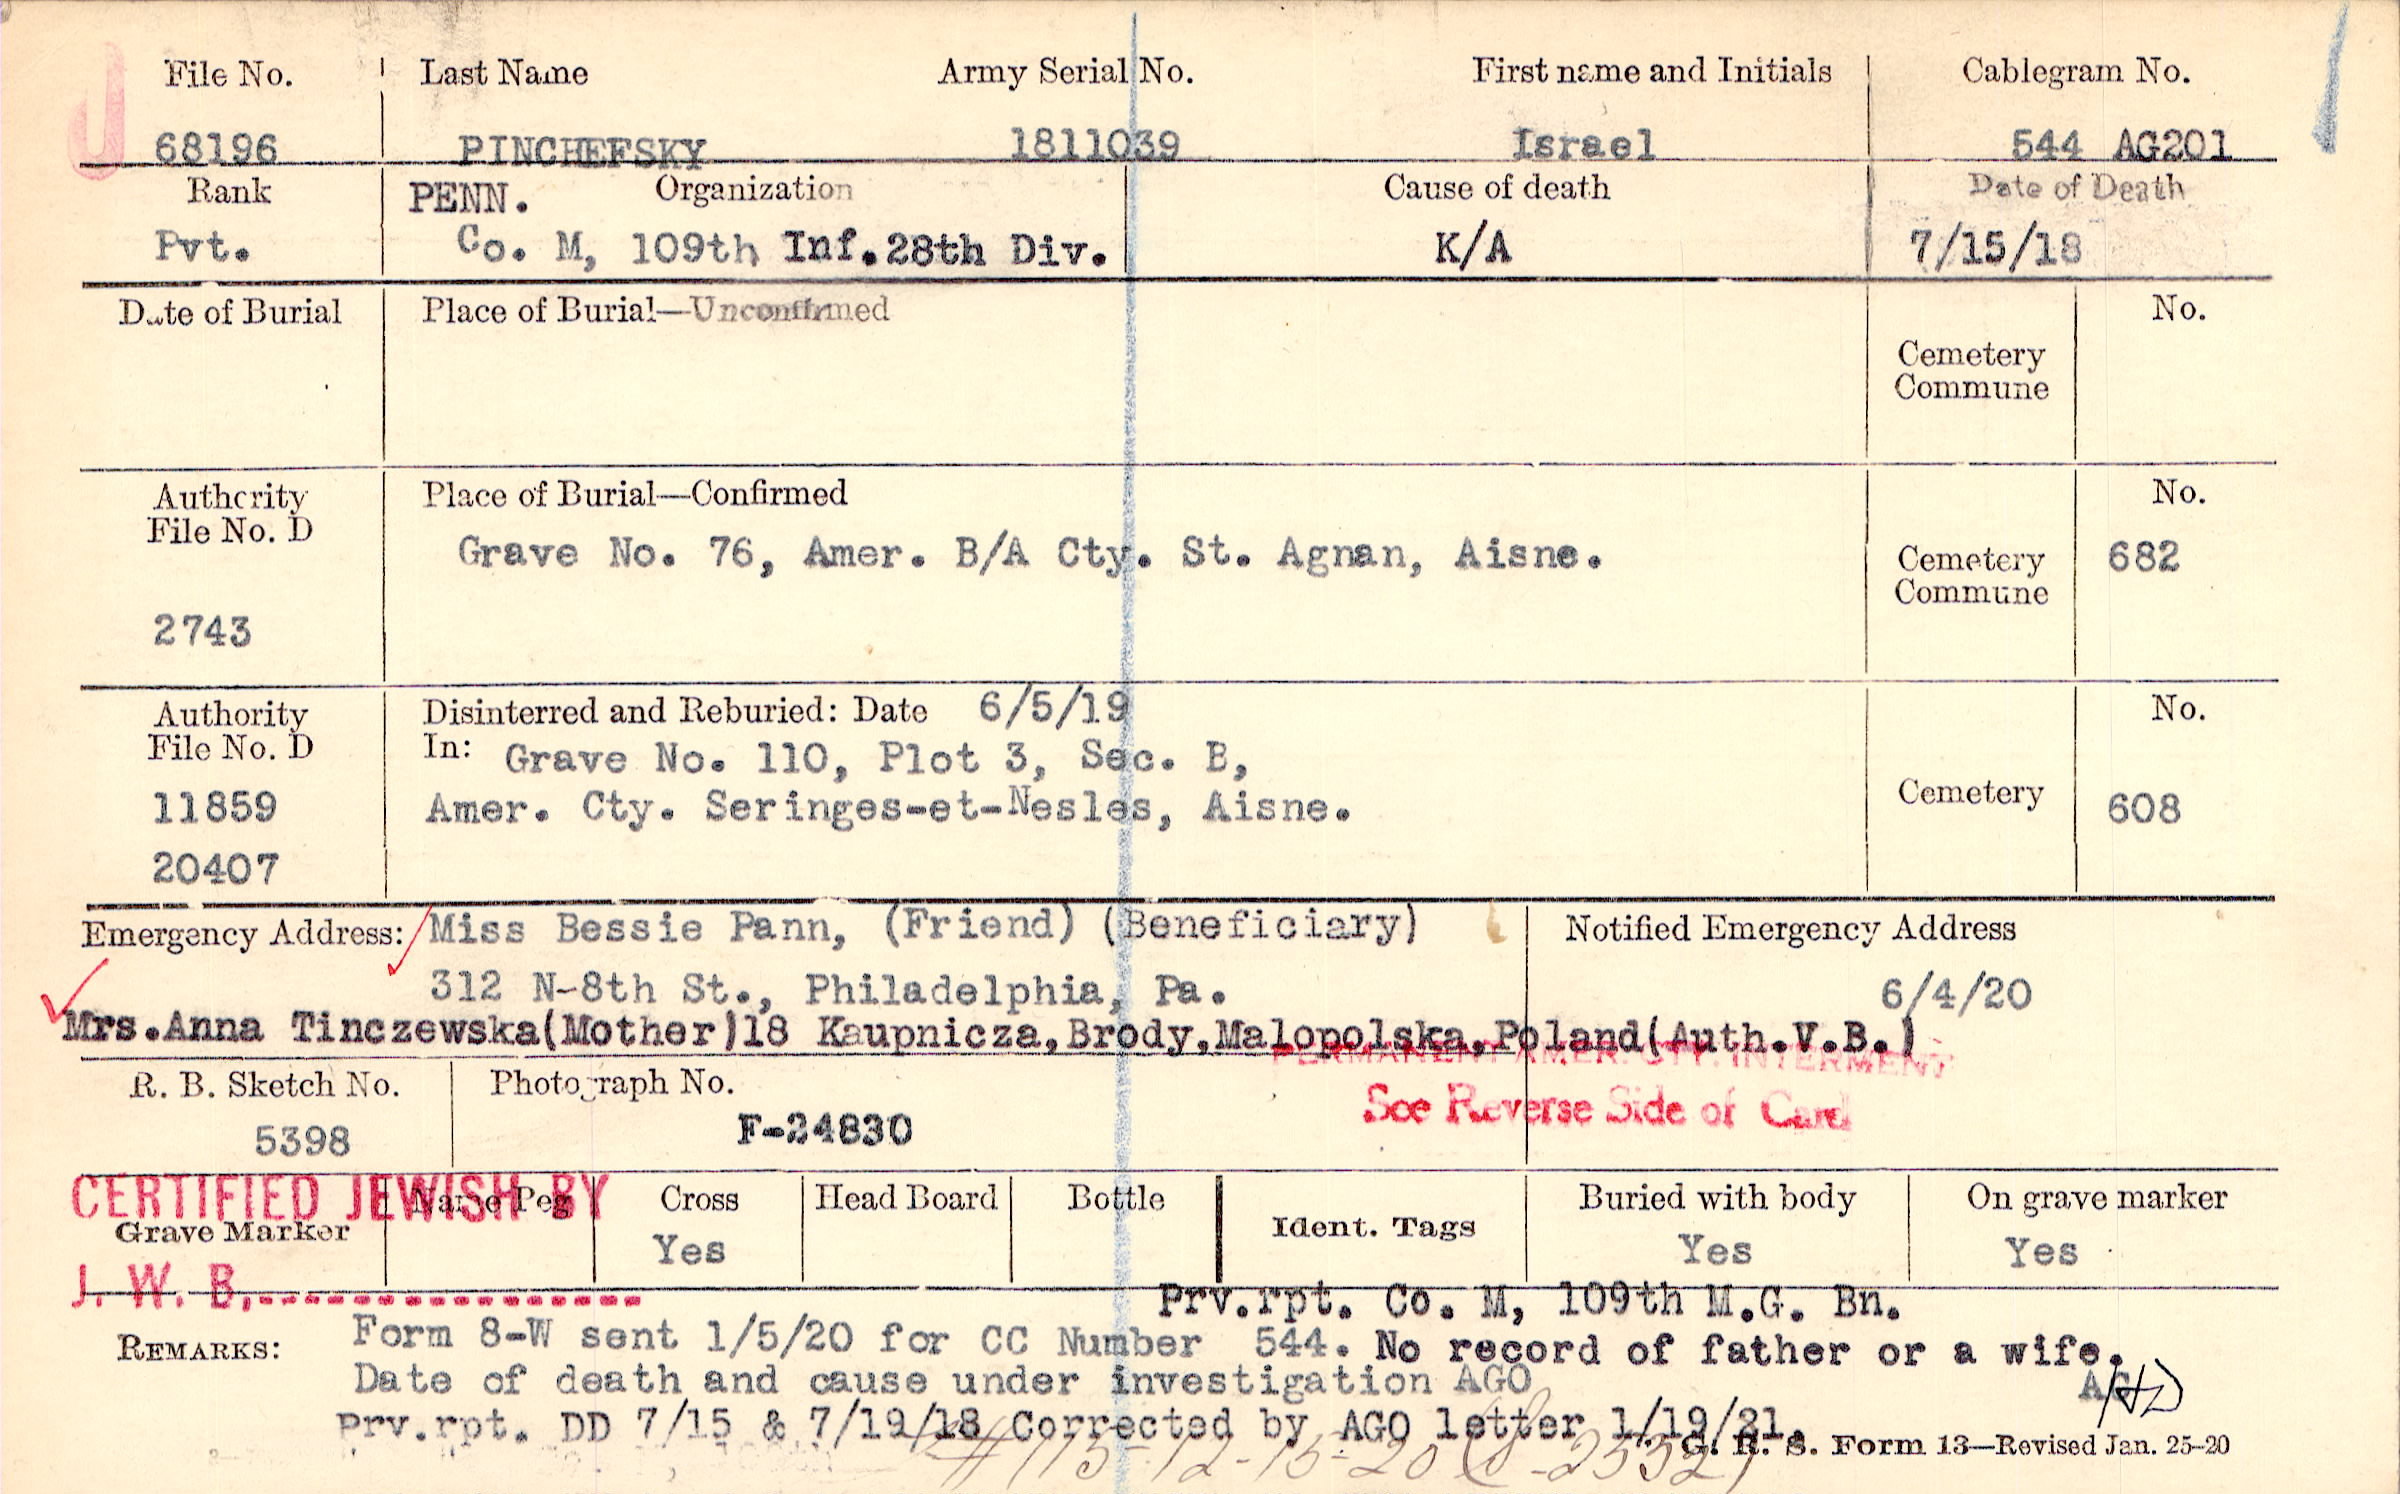 File No. Last Name Army Serial No. First name and Initials Cablegram No.
68196 PINCHEFSKY 1811039 Israel 544 AG201
Rank PENN. Organization Cause of death Date of Death
Pvt. Co. M, 109th Inf.28th Div. K/A 7/15/18
Date of Burial Place of Burial—Unconfirmed No.
Cemetery
Commune
Authority Place of Burial—Confirmed No.
File No. D
Grave No. 76, Amer. B/A Cty. St. Agnan, Aisne. Cemetery 682
Commune
2743
Authority Disinterred and Reburied: Date 6/5/19 No.
File No. D In: Grave No. 110, Plot 3, Sec. B,
11859 Amer. Cty. Seringes-et-Nesles, Aisne. Cemetery 608
20407
Emergency Address: Miss Bessie Pann, (Friend) (Beneficiary) Notified Emergency Address
312 N-8th St., Philadelphia, Pa. 6/4/20
Mrs.Anna Tinczewska(Mother)18 Kaupnicza,Brody,Malopolska,Poland(Auth.V.B.)
PERMANENT AMER. CTY. INTERMENT
R. B. Sketch No. Photograph No. See Reverse Side of Card
5398 F-24830
CERTIFIED JEWISH BY
Grave Marker Name Peg Cross Head Board Bottle Ident. Tags Buried with body On grave marker
Yes Yes Yes
J. W. B.
Prv.rpt. Co. M, 109th M.G. Bn.
REMARKS: Form 8-W sent 1/5/20 for CC Number 544. No record of father or a wife.
Date of death and cause under investigation AGO
Prv.rpt. DD 7/15 & 7/19/18 Corrected by AGO letter 1/19/21.
G. R. S. Form 13—Revised Jan. 25-20